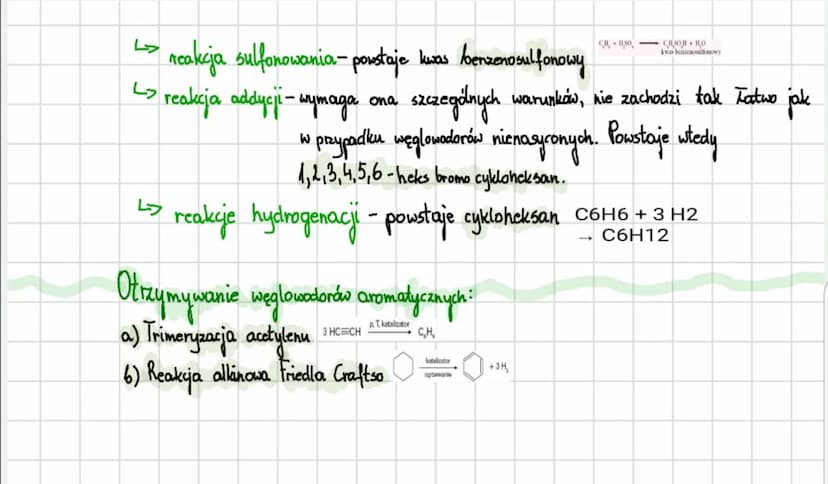 ↳ reakcja sulfonowania – powstaje kwas benzenosulfonowy C₆H₆ + H₂SO₄ ⟶ C₆H₅SO₃H + H₂O
kwas benzenosulfonowy
↳ reakcja addycji – wymaga ona szczególnych warunków, nie zachodzi tak łatwo jak
w przypadku węglowodorów nienasyconych. Powstaje wtedy
1,2,3,4,5,6 - heks bromo cykloheksan.
↳ reakcje hydrogenacji – powstaje cykloheksan C6H6 + 3 H2
→ C6H12
Otrzymywanie węglowodorów aromatycznych:
a) Trimeryzacja acetylenu 3 HC≡CH p, T, katalizator ⟶ C₆H₆
b) Reakcja alkinowa Friedla Craftso katalizator ogrzewanie ⟶ + 3 H₂